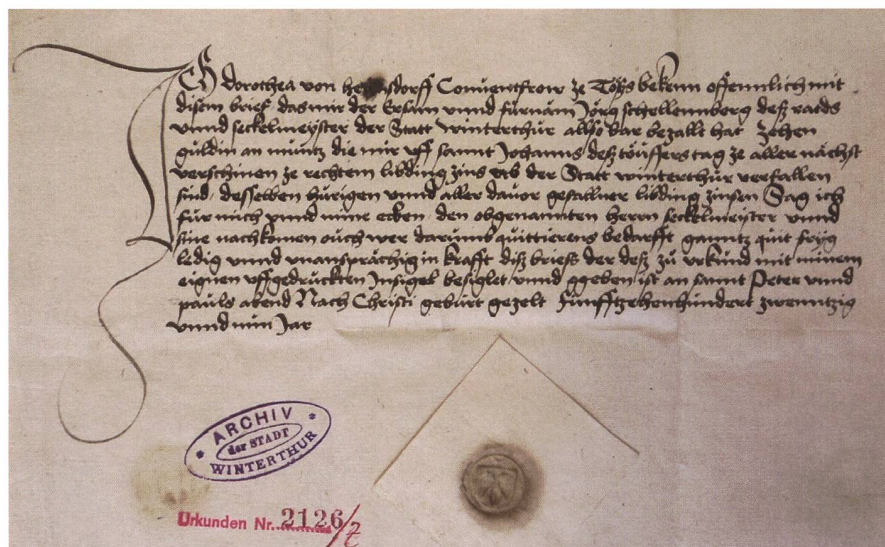 Ich dorothea von Conventfrow ze Töss bekenn offennlich mit
disem brief das mir der Ersam unnd fürnäm Jörg schellennberg deß radds
unnd seckelmeyster der Statt winterthur allso bar bezallt hat zehen
guldin an müntz die mir uff sannt Johanns deß töuffers tag ze aller nächst
verschinen ze rechtem libding zins ab der Statt winterthur verfallen
sind, desselben hürigen unnd aller davor gefallner libding zinsen Sag ich
für mich unnd mine erben, den obgenannten herrn seckelmeyster unnd
sine nachkomen ouch wer darumb quittierens bedarfft ganntz quit fryg
ledig unnd unansprächig in krafft diß briefs der deß zu urkund mit minem
eignen uffgedruckten Insigel besiglet unnd ggeben ist an sannt Peter unnd
pauls abend Nach Christi geburt gezelt fünfftzehenhundert zwenntzig
unnd nün Jar
ARCHIV
der STADT
WINTERTHUR
Urkunden Nr. 2126/